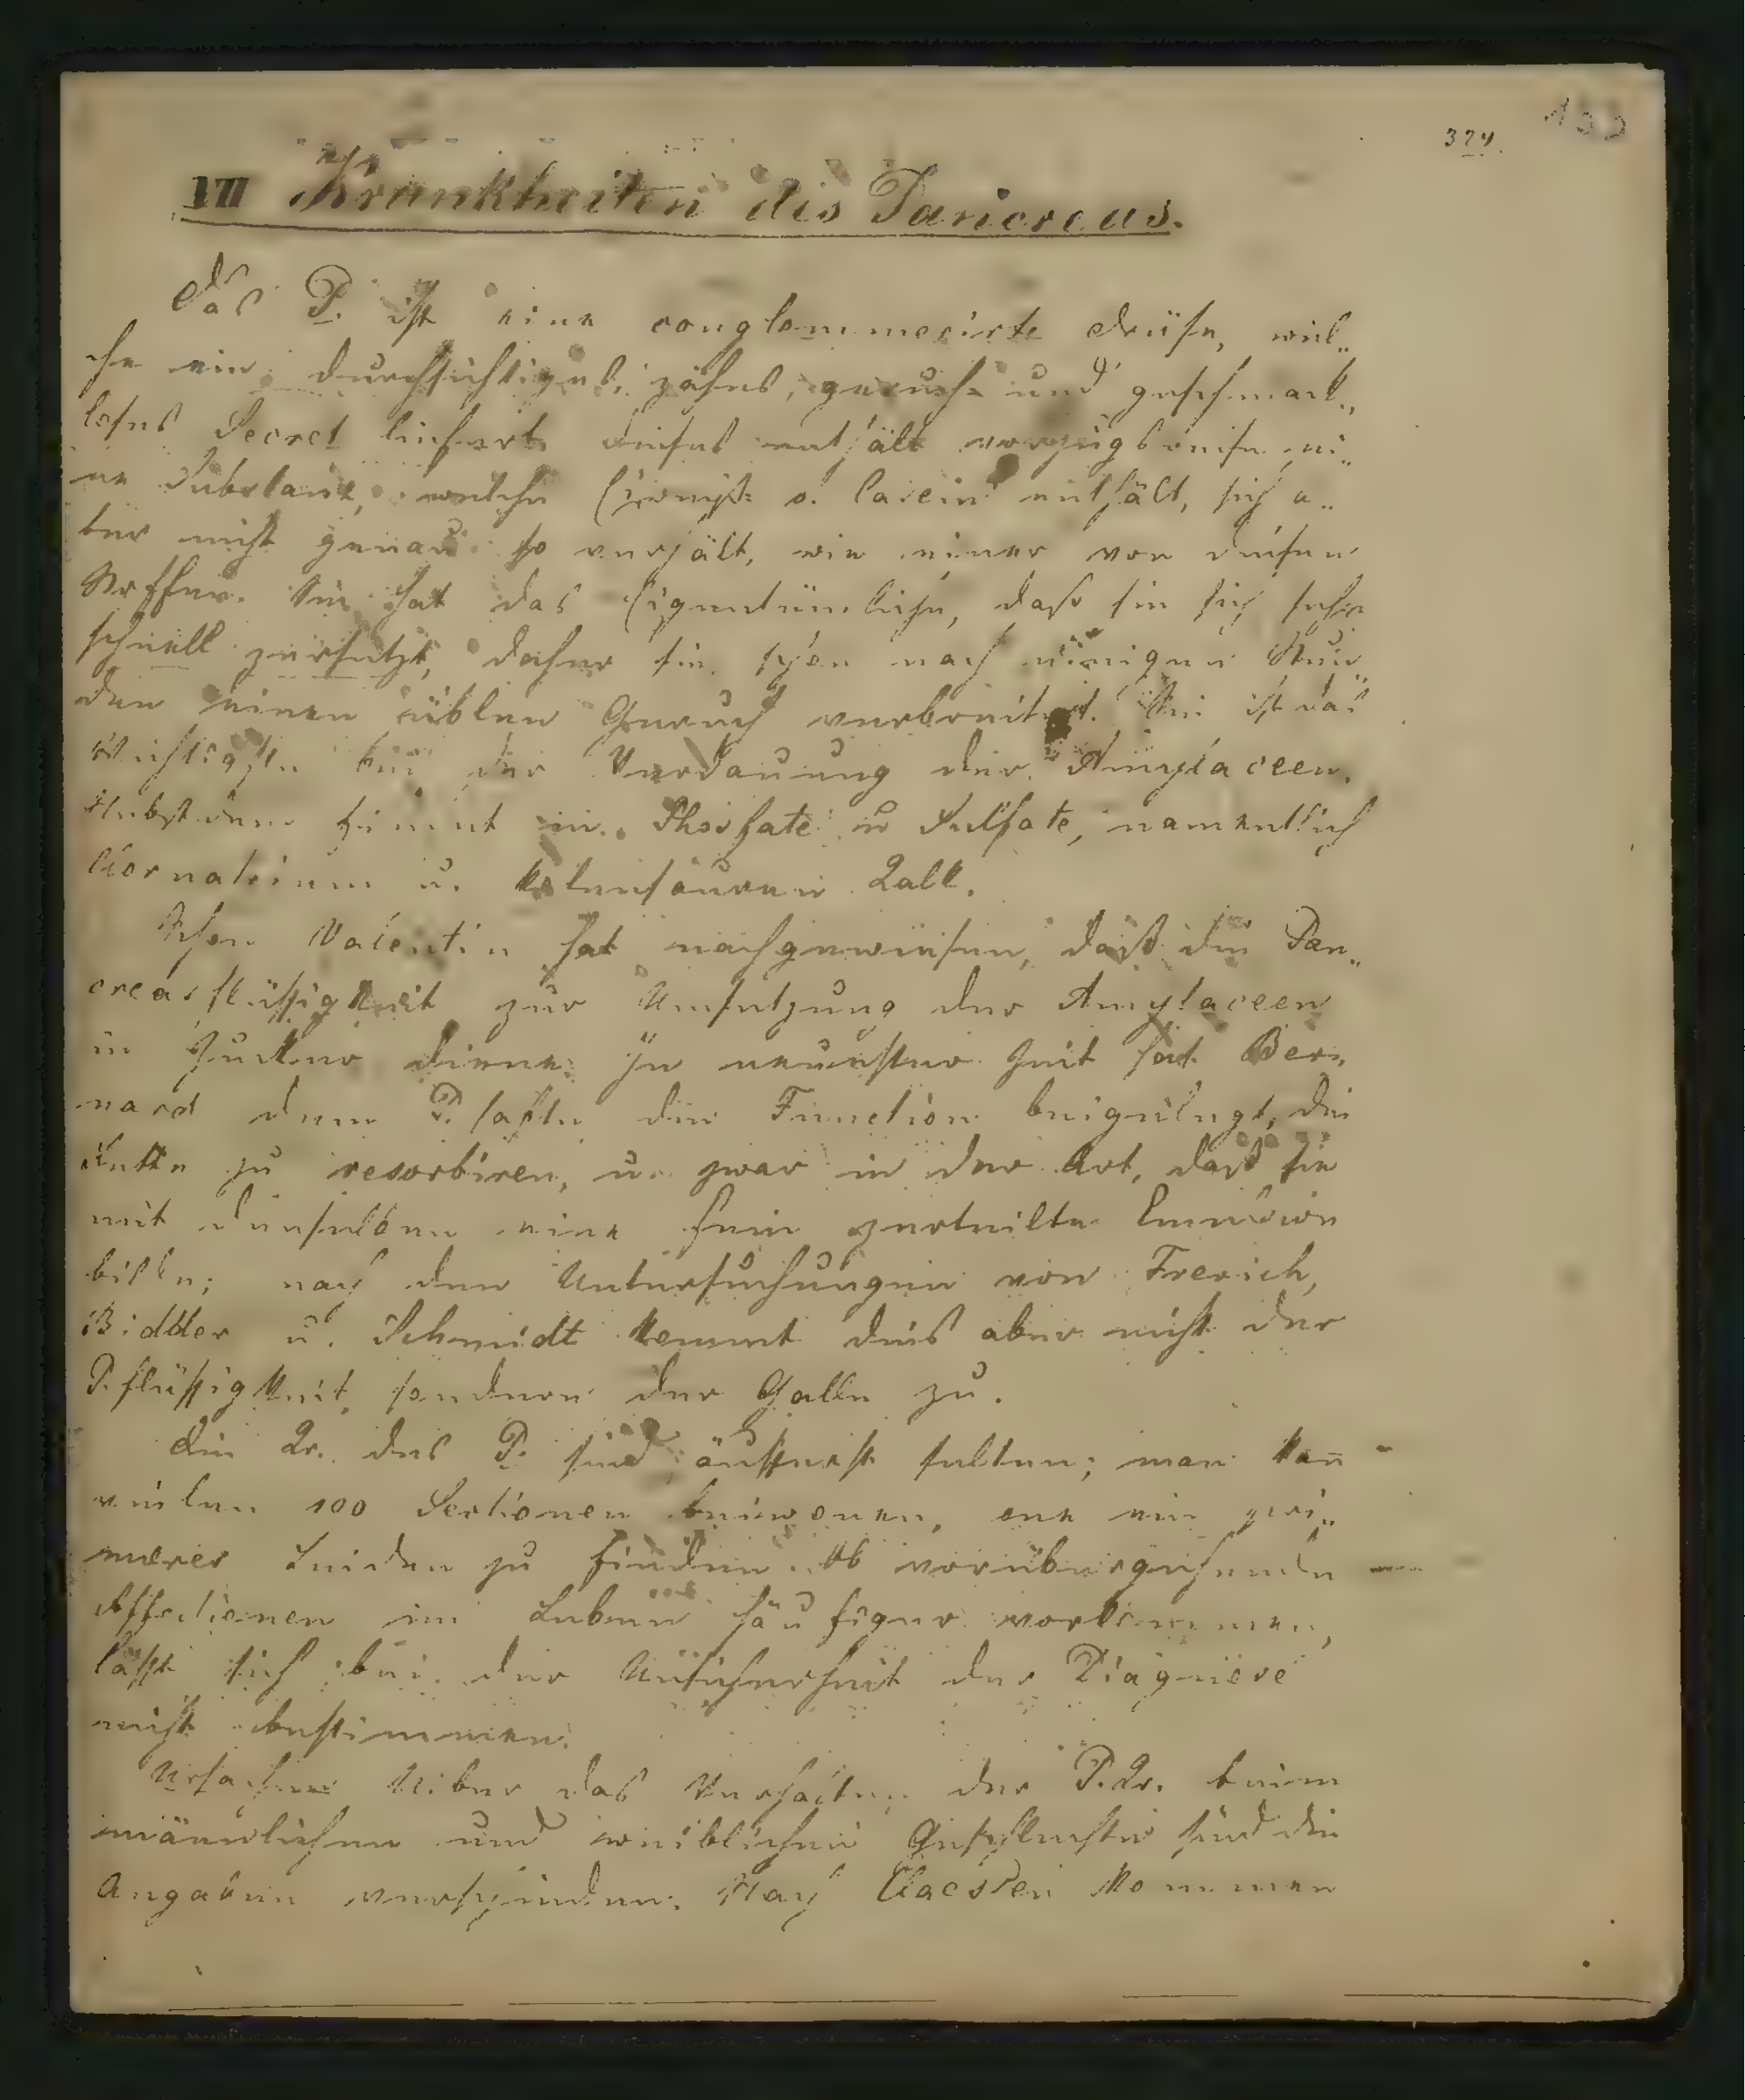 324.
VII Krankheiten des Pancreas.
Das P. ist eine conglommerirte Drüse, wel„
che ein durchsichtiges, zähes, geruch= und geschmack„
loses Secret liefert. Dieses enthält vorzugsweise ei„
ne Substanz, welche Eiweiß= o. Casein enthält, sich a„
ber nicht genau so verhält, wie einer von diesen
Stoffen. Sie hat das Eigentümliche, daß sie sich sehr
schnell zersetzt, daher sie schon nach einigen Stun„
den einen üblen Geruch verbreitet. Sie ist das
Wichtigste bei der Verdauung der Amylaceen.
Außerdem kommt in Phosfate u Sulfate, namentlich
Clornatrium u. kolensauren Kalk.
Schon Valentin hat nachgewiesen, daß die Pan„
creasflüssigkeit zur Umsetzung der Amylaceen
in Zucker diene. In neuester Zeit hat Ber„
nard dem P. safte die Function beigelegt, die
Fette zu resorbiren, u. zwar in der Art, daß sie
mit denselben eine fein zerteilte Emulsion
bilden; nach den Untersuchungen von Frerich,
Bidder u. Schmidt kommt dies aber nicht der
P. flüssigkeit, sondern der Galle zu.
Die Kr. des P. sind äusserst selten; man kan̄
vielen 100 Sectionen beiwonen, one ein pri„
märes Leiden zu finden. Ob vorübergehende
Affectionen im Leben häufiger vorkommen,
läßt sich bei der Unsicherheit der Diagnose
nicht bestimmen.
Ursachen Ueber das Verhalten der P. Kr. beim
männlichen und weiblichen Geschlechte sind die
Angaben verschieden. Nach Claessen kommen